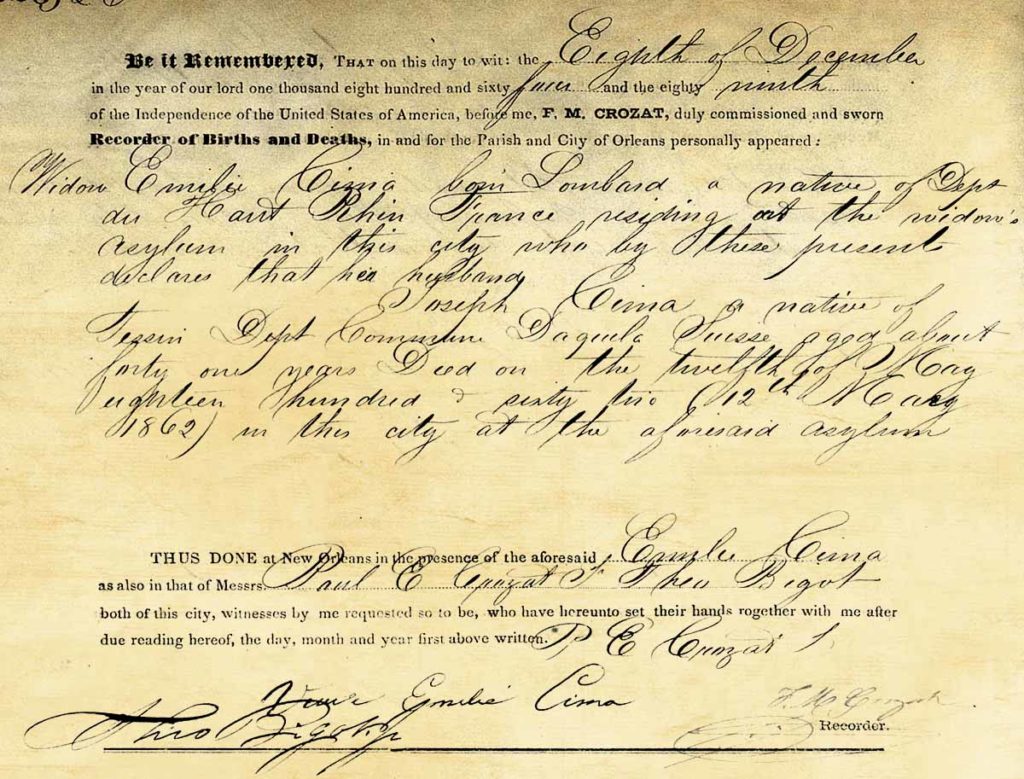 Be it Remembered, THAT on this day to wit: the Eighth of December
in the year of our lord one thousand eight hundred and sixty four and the eighty ninth
of the Independence of the United States of America, before me, F. M. CROZAT, duly commissioned and sworn
Recorder of Births and Deaths, in and for the Parish and City of Orleans personally appeared:
Widow Emilie Cima born Lombard a native of Dept
du Haut Rhin France residing at the widow's
asylum in this city who by these present
declares that her husband
Joseph Cima a native of
Tessin Dept Commune Daquila Suisse aged about
forty one years Died on the twelfth of May
eighteen hundred & sixty two (12th May
1862) in this city at the aforesaid asylum
THUS DONE at New Orleans in the presence of the aforesaid Emilie Cima
as also in that of Messrs. Paul E Crozat & Theo Bigot
both of this city, witnesses by me requested so to be, who have hereunto set their hands rogether with me after
due reading hereof, the day, month and year first above written. P E Crozat
Emilie Cima
F. M Crozat
Theo Bigot
Recorder.